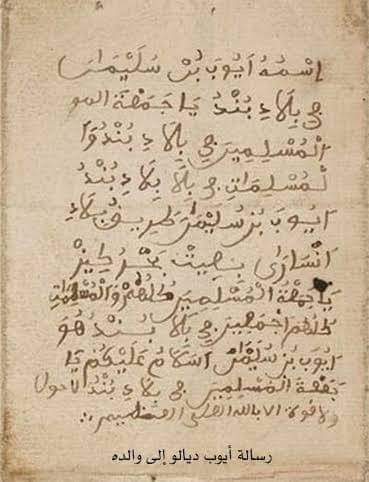 إسْمُهُ أَيُوبَ بُنْ سُلَيْمَانَ
فِي بِلَادِ بُنْدُ يَا جَمَعَةَ المو
الْمُسْلِمِينَ فِي بِلَادِ بُنْدُ وَا
لْمُسْلِمَاتِ فِي بِلَادِ بُنْدُ
أَيُوبَ بُنْ سُلَيْمَانَ طَرِيق بِلَادِ
أَنْسَارَى
يَا جَمْعَةُ الْمُسْلِمِينَ كُلُهُمْ وَالْمُسْلِمَاتِ
كُلُهُم أَجْمَعِينَ فِي بِلَادِ بُنْدُ هُوَ
أَيُوبُ بُنْ سُلَيْمَانَ أَسَلَامُ عَلَيْكُمْ يَا
جَمْعَةَ الْمُسْلِمِينَ فِي بِلَادِ بُنْدُ لاحول
ولا قوة الا بالله العلي العظيم
رسالة أيوب ديالو إلى والده